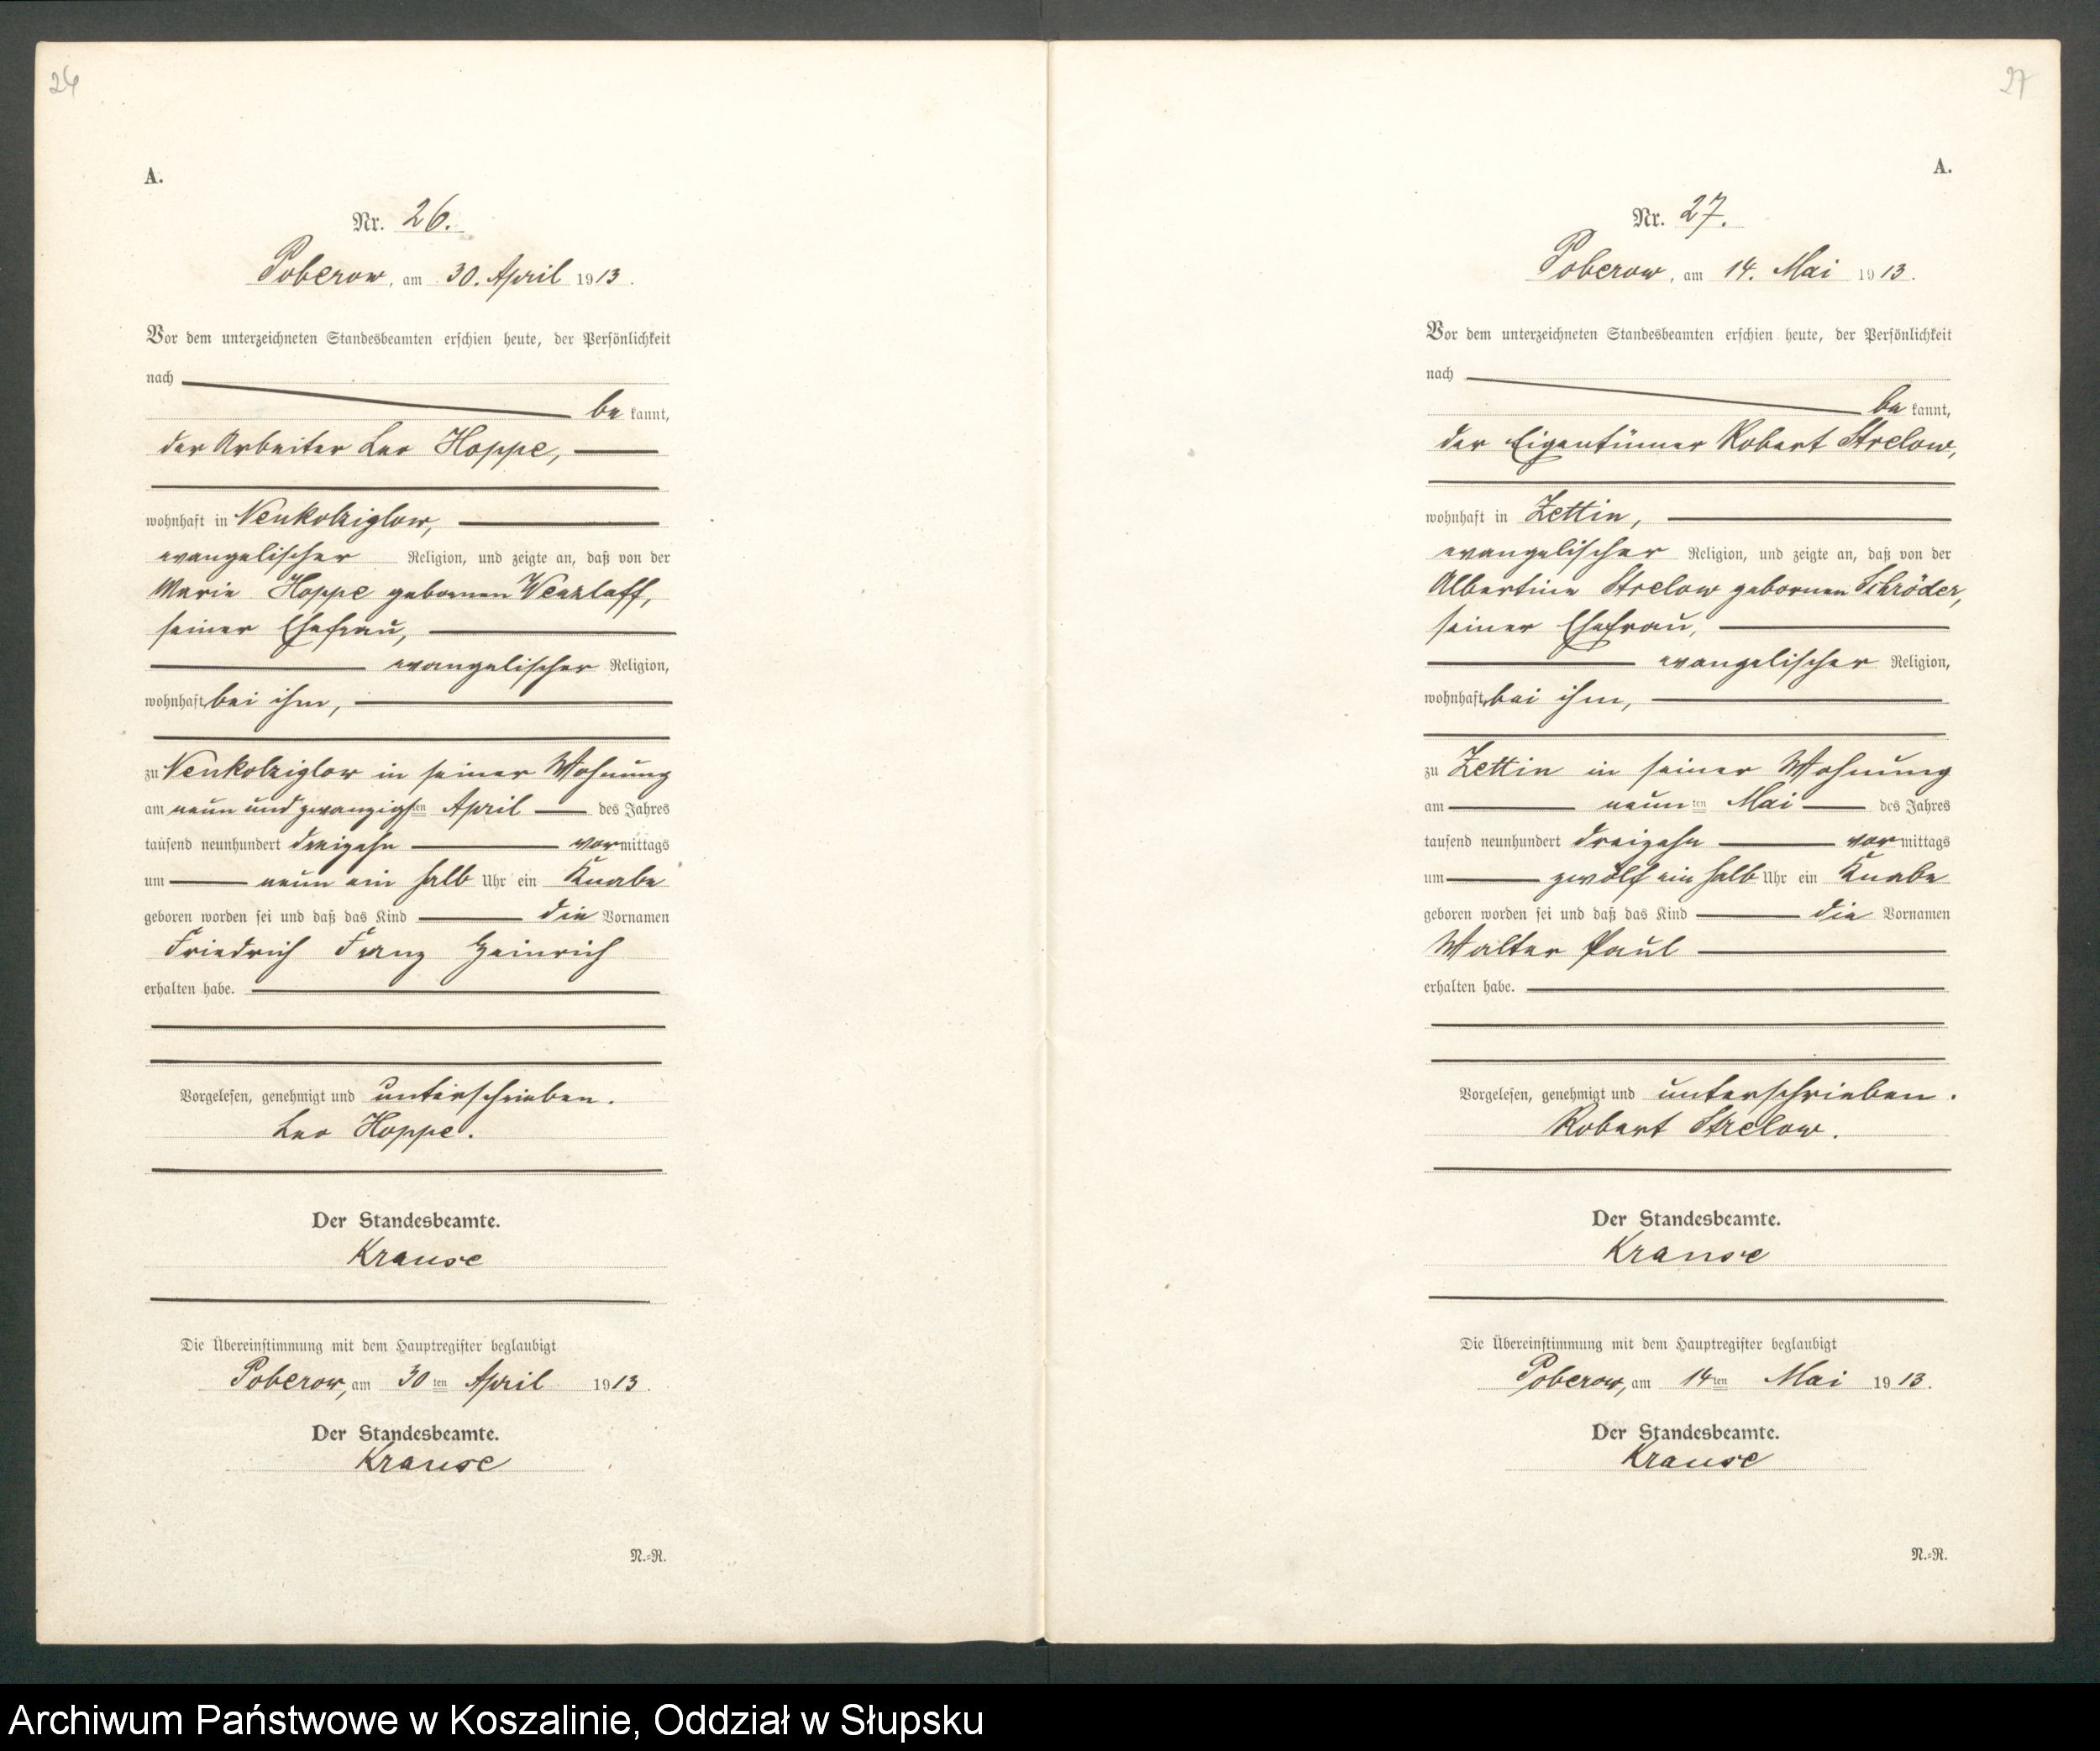 26
A.
Nr. 26.
Poberow, am 30. April 1913.
Vor dem unterzeichneten Standesbeamten erschien heute, der Persönlichkeit
nach
be kannt,
der Arbeiter Leo Hoppe,
wohnhaft in Neukolziglow,
evangelischer Religion, und zeigte an, daß von der
Marie Hoppe gebornen Wenzlaff,
seiner Ehefrau,
evangelischer Religion,
wohnhaft bei ihm,
zu Neukolziglow in seiner Wohnung
am neun und zwanzigsten April des Jahres
tausend neunhundert dreizehn vormittags
um neun ein halb Uhr ein Knabe
geboren worden sei und daß das Kind die Vornamen
Friedrich Franz Heinrich
erhalten habe.
Vorgelesen, genehmigt und unterschrieben.
Leo Hoppe.
Der Standesbeamte.
Krause
Die Übereinstimmung mit dem Hauptregister beglaubigt
Poberow, am 30ten April 1913.
Der Standesbeamte.
Krause
N.=R.
27
A.
Nr. 27.
Poberow, am 14. Mai 1913.
Vor dem unterzeichneten Standesbeamten erschien heute, der Persönlichkeit
nach
be kannt,
der Eigentümer Robert Strelow,
wohnhaft in Zettin,
evangelischer Religion, und zeigte an, daß von der
Albertine Strelow gebornen Schröder,
seiner Ehefrau,
evangelischer Religion,
wohnhaft bei ihm,
zu Zettin in seiner Wohnung
am neunten Mai des Jahres
tausend neunhundert dreizehn vormittags
um zwölf ein halb Uhr ein Knabe
geboren worden sei und daß das Kind die Vornamen
Walter Paul
erhalten habe.
Vorgelesen, genehmigt und unterschrieben.
Robert Strelow.
Der Standesbeamte.
Krause
Die Übereinstimmung mit dem Hauptregister beglaubigt
Poberow, am 14ten Mai 1913.
Der Standesbeamte.
Krause
N.=R.
Archiwum Państwowe w Koszalinie, Oddział w Słupsku